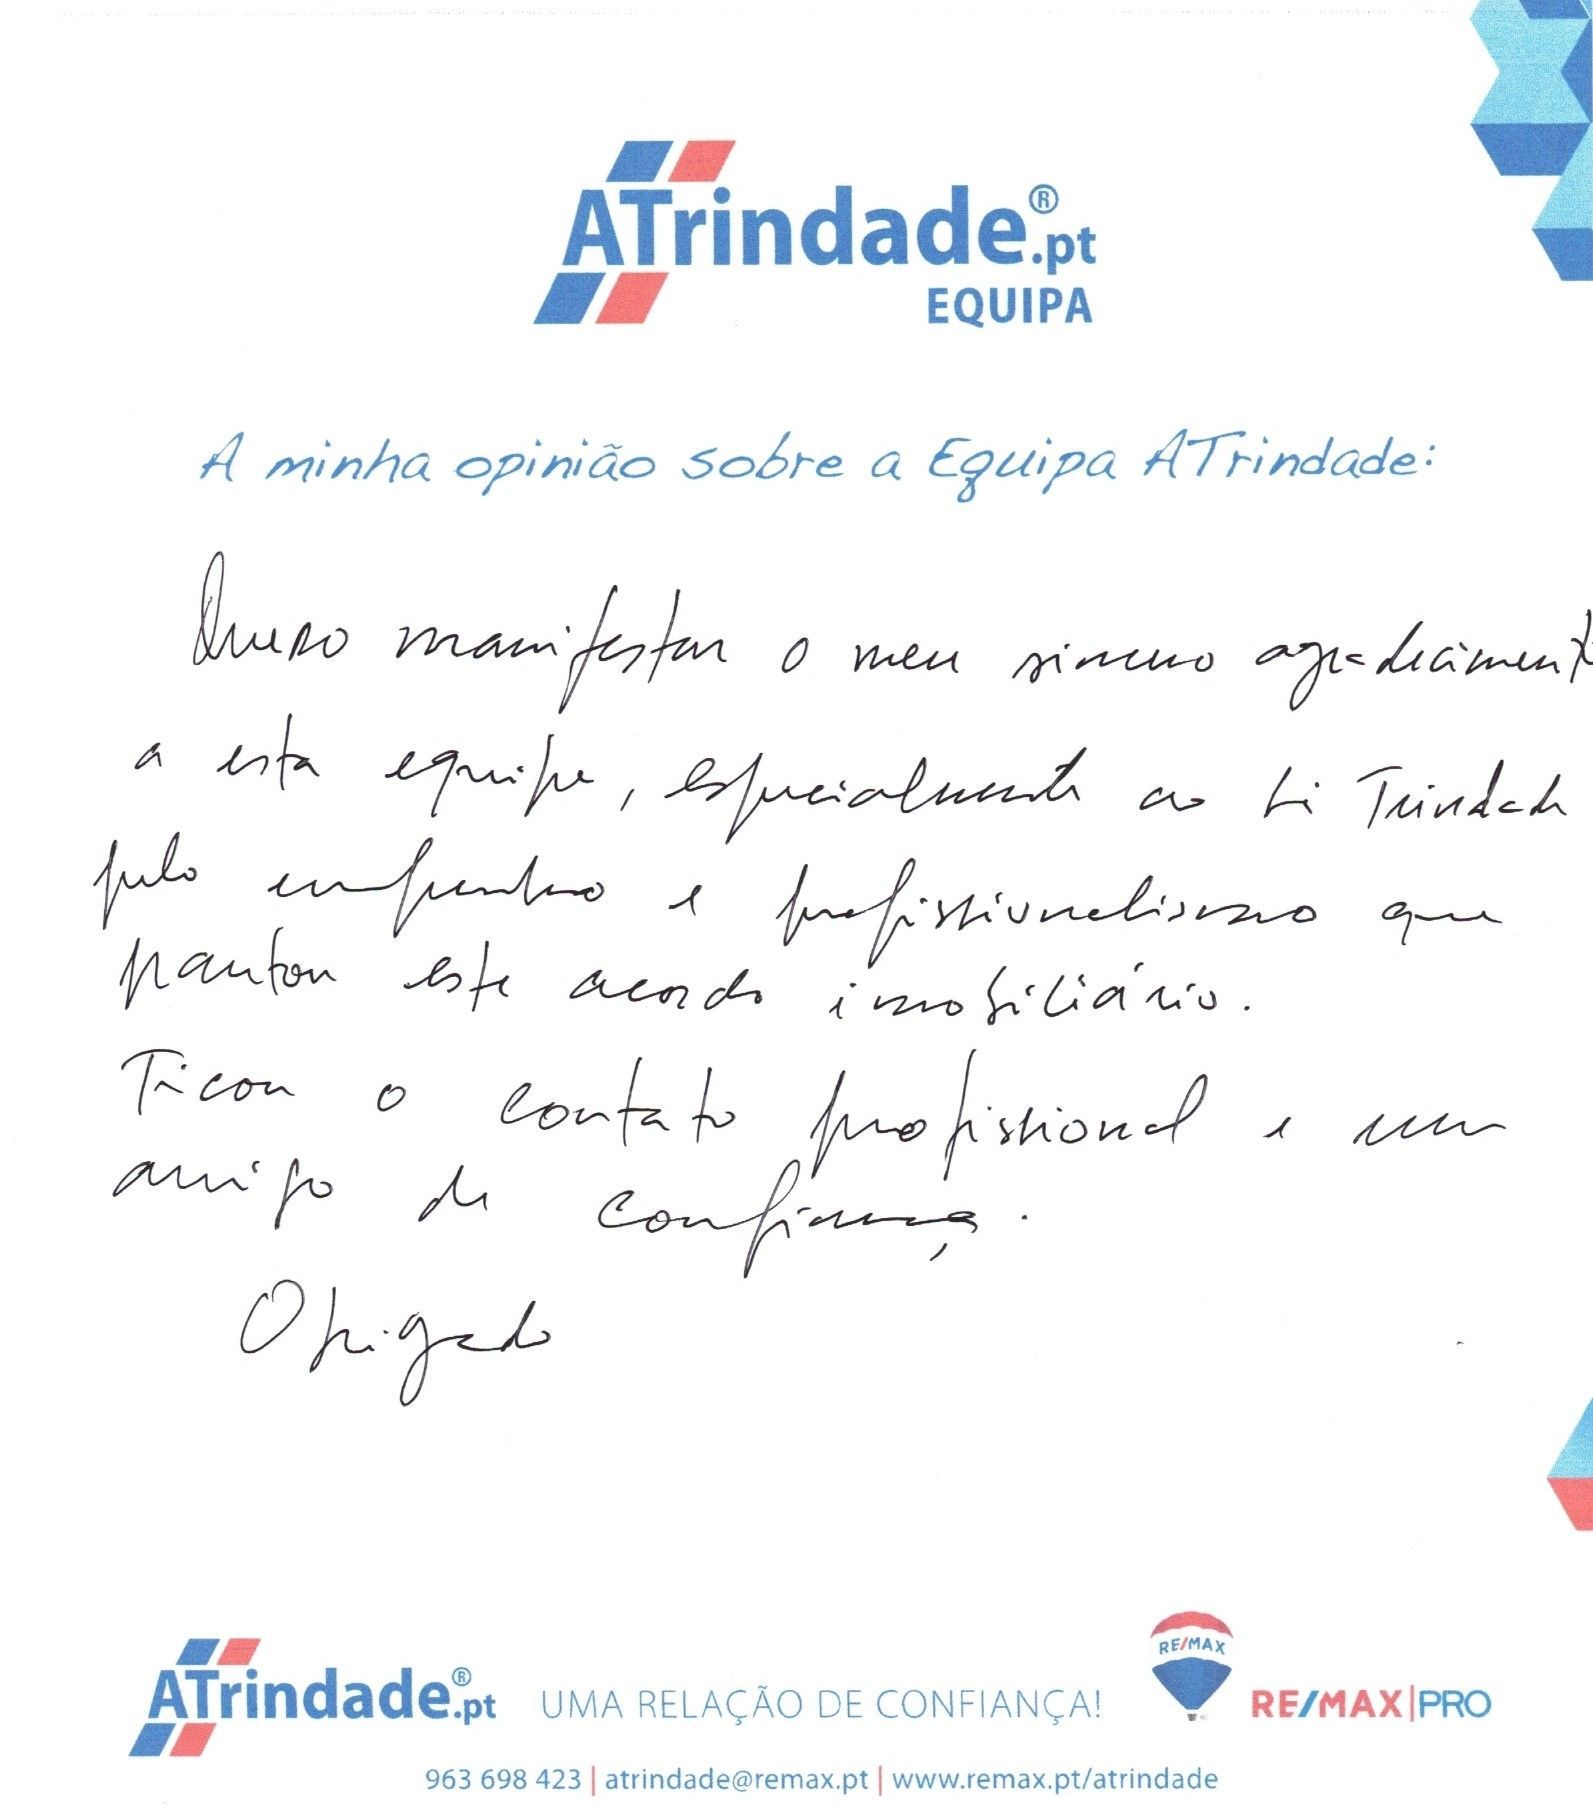 ATrindade®.pt
EQUIPA
A minha opinião sobre a Equipa ATrindade:
Quero manifestar o meu sincero agradecimento
a esta equipe, especialmente ao Trindade
pelo empenho e profissionalismo que
pautou este acordo imobiliário.
Ficou o contato profissional e um
amigo de confiança.
Obrigado
ATrindade®.pt UMA RELAÇÃO DE CONFIANÇA! RE/MAX RE/MAX|PRO
963 698 423 | atrindade@remax.pt | www.remax.pt/atrindade